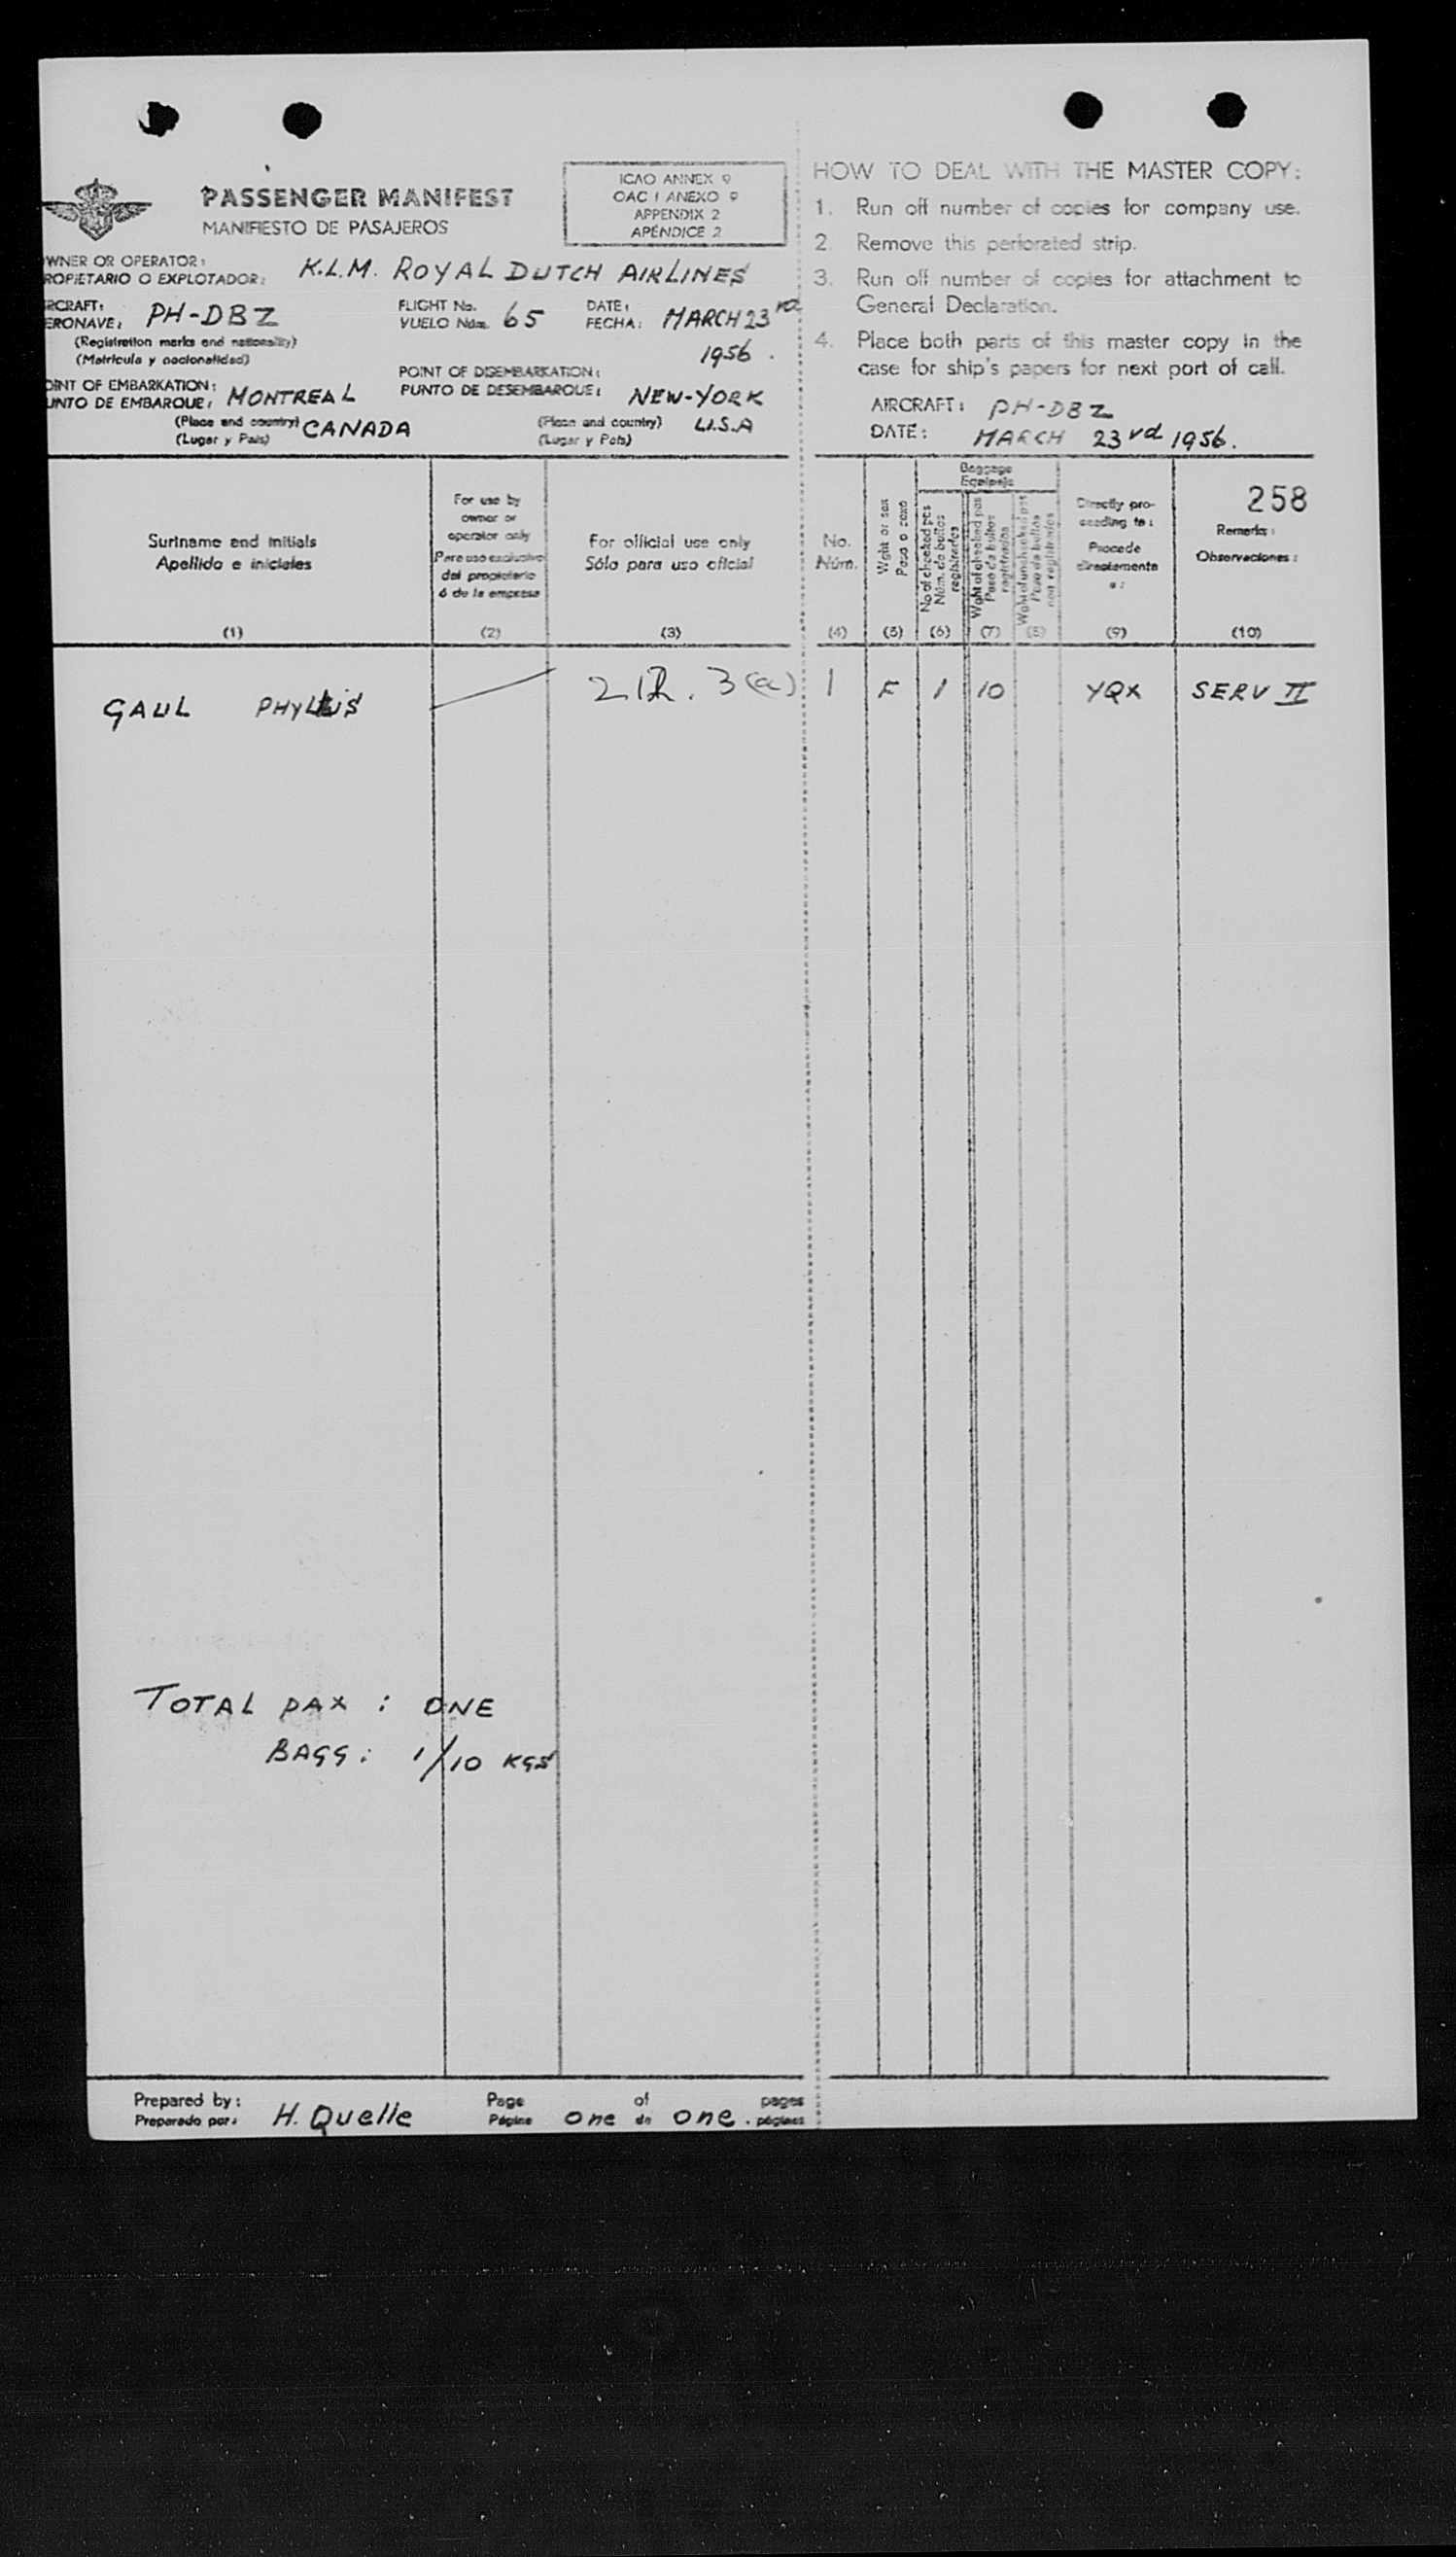 PASSENGER MANIFEST
MANIFIESTO DE PASAJEROS
ICAO ANNEX 9
OACI ANEXO 9
APPENDIX 2
APÉNDICE 2
WNER OR OPERATOR:
ROPIETARIO O EXPLOTADOR:
K.L.M. ROYAL DUTCH AIRLINES
RCRAFT:
ERONAVE:
PH-DBZ
(Registration marks and nationality)
(Matrícula y nacionalidad)
FLIGHT No.
VUELO Núm.
65
DATE:
FECHA:
MARCH 23rd
1956.
OINT OF EMBARKATION:
UNTO DE EMBARQUE:
MONTREAL
(Place and country)
(Lugar y País)
CANADA
POINT OF DISEMBARKATION:
PUNTO DE DESEMBARQUE:
NEW-YORK
(Place and country)
(Lugar y País)
U.S.A
HOW TO DEAL WITH THE MASTER COPY:
1. Run off number of copies for company use.
2. Remove this perforated strip.
3. Run off number of copies for attachment to
General Declaration.
4. Place both parts of this master copy in the
case for ship's papers for next port of call.
AIRCRAFT: PH-DBZ
DATE: MARCH 23rd 1956.
Surname and initials
Apellido e iniciales
(1)
For use by
owner or
operator only
Para uso exclusivo
del propietario
ó de la empresa
(2)
For official use only
Sólo para uso oficial
(3)
No.
Núm.
(4)
Wght or sex
Peso o sexo
(5)
Baggage
Equipaje
No of checked pcs
Núm. de bultos
registrados
(6)
Wght of checked pcs
Peso de bultos
registrados
(7)
Wght of unchecked pcs
Peso de bultos
non registrados
(8)
Directly pro-
ceeding to:
Procede
directamente
a:
(9)
258
Remarks:
Observaciones:
(10)
GAUL PHYLLIS 212. 3(a) 1 F 1 10 YQX SERV II
TOTAL PAX: ONE
BAGG: 1/10 KGS
Prepared by:
Preparado por:
H. Quelle
Page
Página
one
of
de
one.
pages
páginas